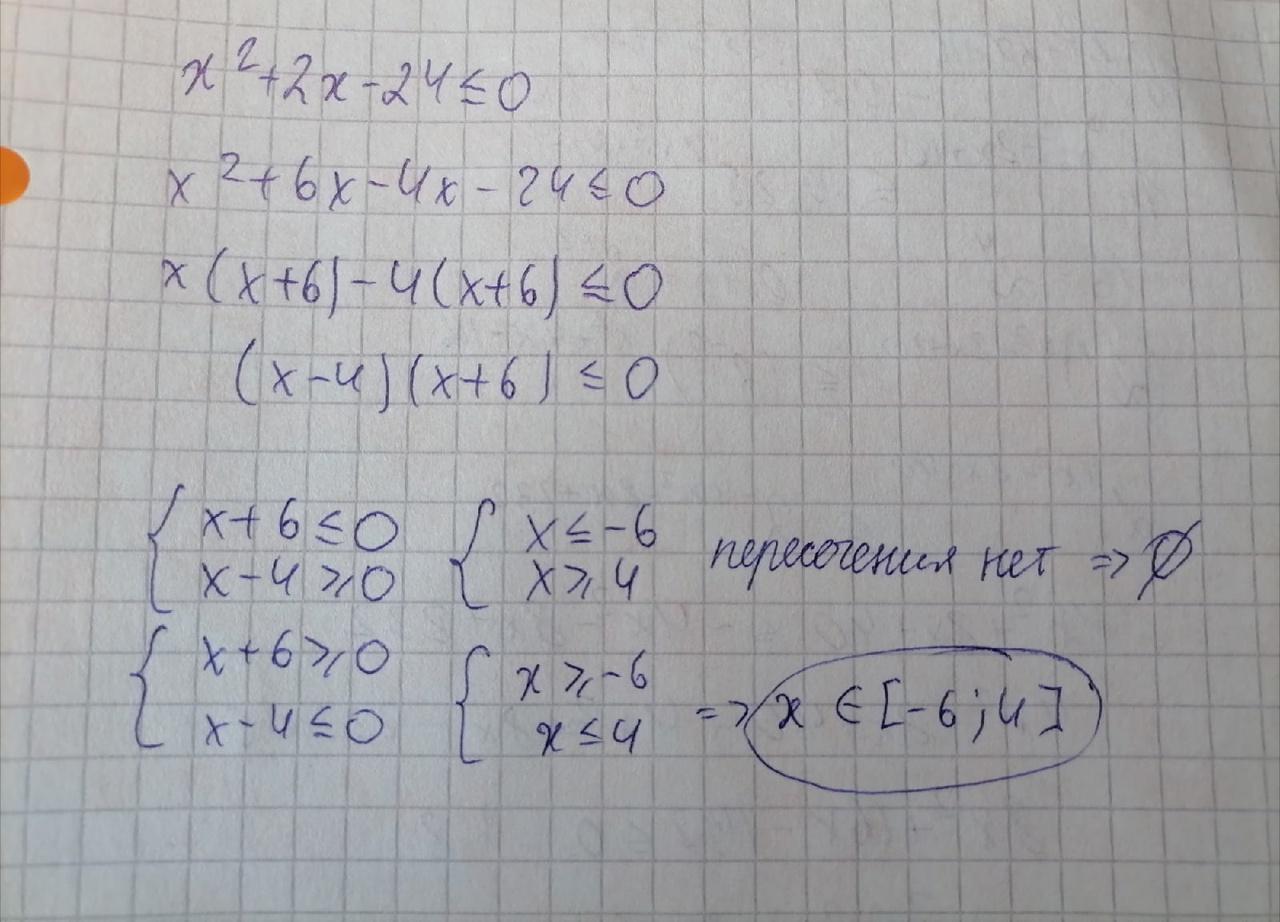 x²+2x-24≤0
x²+6x-4x-24≤0
x(x+6)-4(x+6)≤0
(x-4)(x+6)≤0
{ x+6≤0 { x≤-6 пересечения нет => Ø
x-4⩾0 x⩾4
{ x+6⩾0 { x⩾-6 => x ∈ [-6;4]
x-4≤0 x≤4